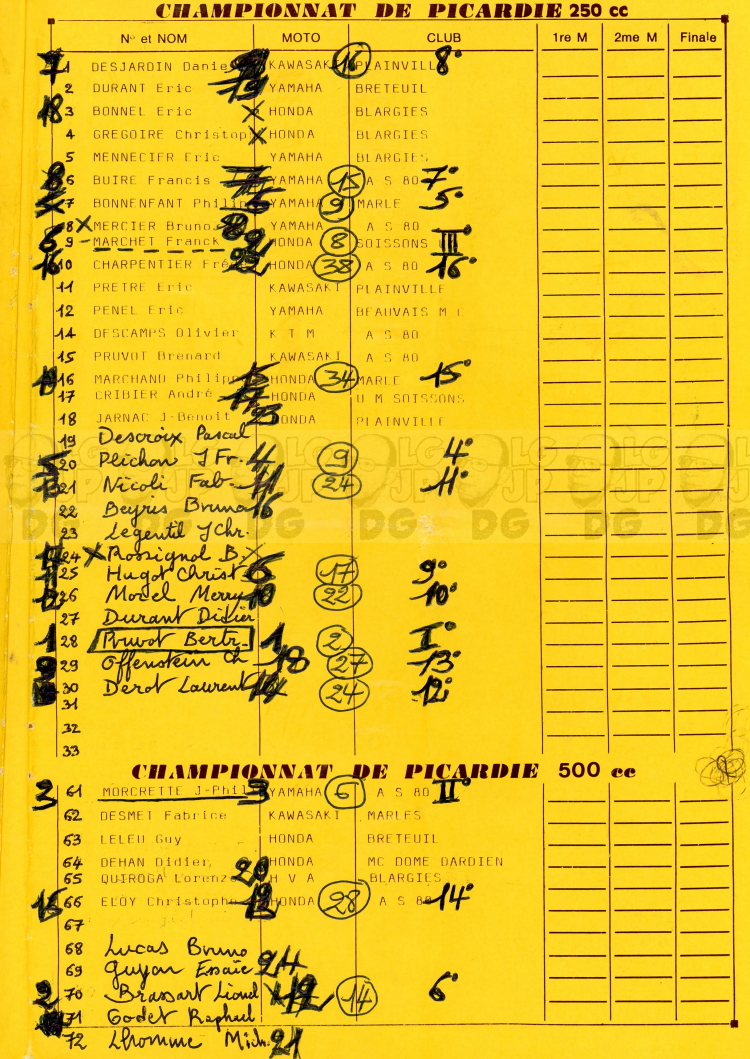 CHAMPIONNAT DE PICARDIE 250 cc
N° et NOM MOTO CLUB 1re M 2me M Finale
7 1 DESJARDIN KAWASAKI 16 PLAINVILLE 8°
2 DURANT Eric 19 YAMAHA BRETEUIL
18 3 BONNEL Eric X HONDA BLARGIES
4 GREGOIRE Christop X HONDA BLARGIES
5 MENNECIER Eric YAMAHA BLARGIES
8 6 BUIRE Francis YAMAHA 15 A S 80 7°
7 BONNENFANT Philip YAMAHA 9 MARLE 5°
8 X MERCIER Bruno YAMAHA A S 80
9 - MARCHET Franck HONDA 8 SOISSONS III°
16 10 CHARPENTIER HONDA 38 A S 80 16°
11 PRETRE Eric KAWASAKI PLAINVILLE
12 PENEL Eric YAMAHA BEAUVAIS M C
14 DESCAMPS Olivier K T M A S 80
15 PRUVOT Brenard KAWASAKI A S 80
16 MARCHAND Philipp 15 HONDA 34 MARLE 15°
17 CRIBIER André HONDA U M SOISSONS
18 JARNAC J-Benoit 23 HONDA PLAINVILLE
19 Descroix Pascal
20 Plichon J Fr. 4 9 4°
21 Nicoli Fab. 11 24 11°
22 Beyris Bruno 16
23 Legentil J Chr.
24 X Rossignol B. X
25 Hugot Christ 6 17 9°
26 Morel Merry 10 22 10°
27 Durant Didier
1 28 Pruvot Bertr. 1 2 I°
9 29 Offenstein Ch 18 27 13°
30 Derot Laurent 24 12°
31
32
33
CHAMPIONNAT DE PICARDIE 500 cc
3 61 MORCRETTE J-Phil 3 YAMAHA 6 A S 80 II°
62 DESMET Fabrice KAWASAKI MARLES
63 LELEU Guy HONDA BRETEUIL
64 DEHAN Didier HONDA MC DOME DARDIEN
65 QUIROGA Lorenzo 20 H V A BLARGIES
15 66 ELOY Christophe HONDA 28 A S 80 14°
67
68 Lucas Bruno
69 Guyon Essaïe 24
2 70 Brassart Lionel 12 14 6°
71 Godet Raphael
72 Lhomme Mich. 21